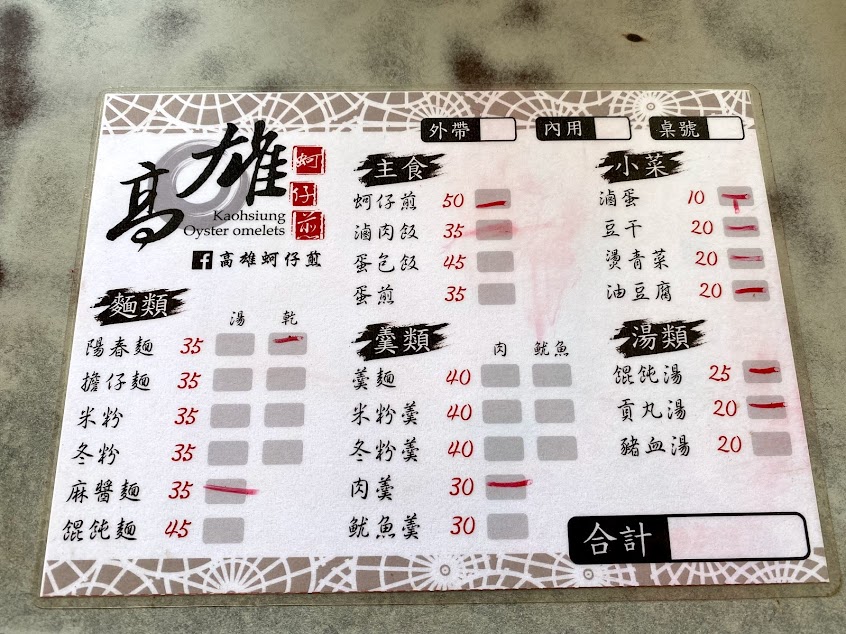 外帶 內用 桌號
高雄
蚵仔煎
Kaohsiung
Oyster omelets
高雄蚵仔煎
主食
蚵仔煎 50
滷肉飯 35
蛋包飯 45
蛋煎 35
小菜
滷蛋 10
豆干 20
燙青菜 20
油豆腐 20
麵類
湯 乾
陽春麵 35
擔仔麵 35
米粉 35
冬粉 35
麻醬麵 35
餛飩麵 45
羹類
肉 魷魚
羹麵 40
米粉羹 40
冬粉羹 40
肉羹 30
魷魚羹 30
湯類
餛飩湯 25
貢丸湯 20
豬血湯 20
合計